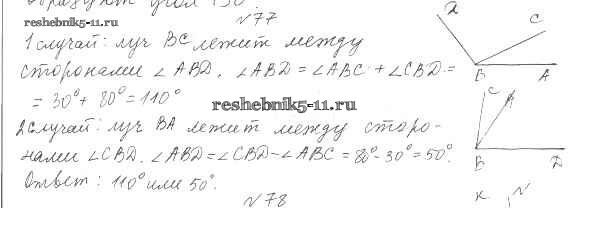 образуют угол 130°.
reshebnik5-11.ru
№77
1 случай: луч BC лежит между
сторонами ∠ABD. ∠ABD = ∠ABC + ∠CBD =
= 30° + 80° = 110°
reshebnik5-11.ru
2 случай: луч BA лежит между сторо-
нами ∠CBD. ∠ABD = ∠CBD - ∠ABC = 80° - 30° = 50°.
Ответ: 110° или 50°.
№78
D
C
B
A
C
A
B
D
K
N